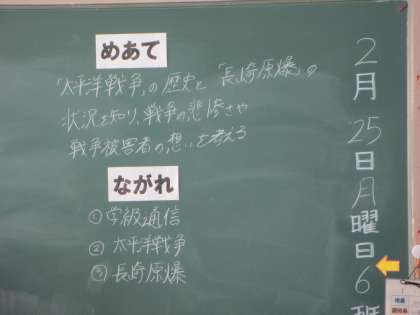 めあて
「太平洋戦争」の歴史と「長崎原爆」の
状況を知り、戦争の悲惨さや
戦争被害者の想いを考える
ながれ
①学級通信
②太平洋戦争
③長崎原爆
2月25日月曜日6班